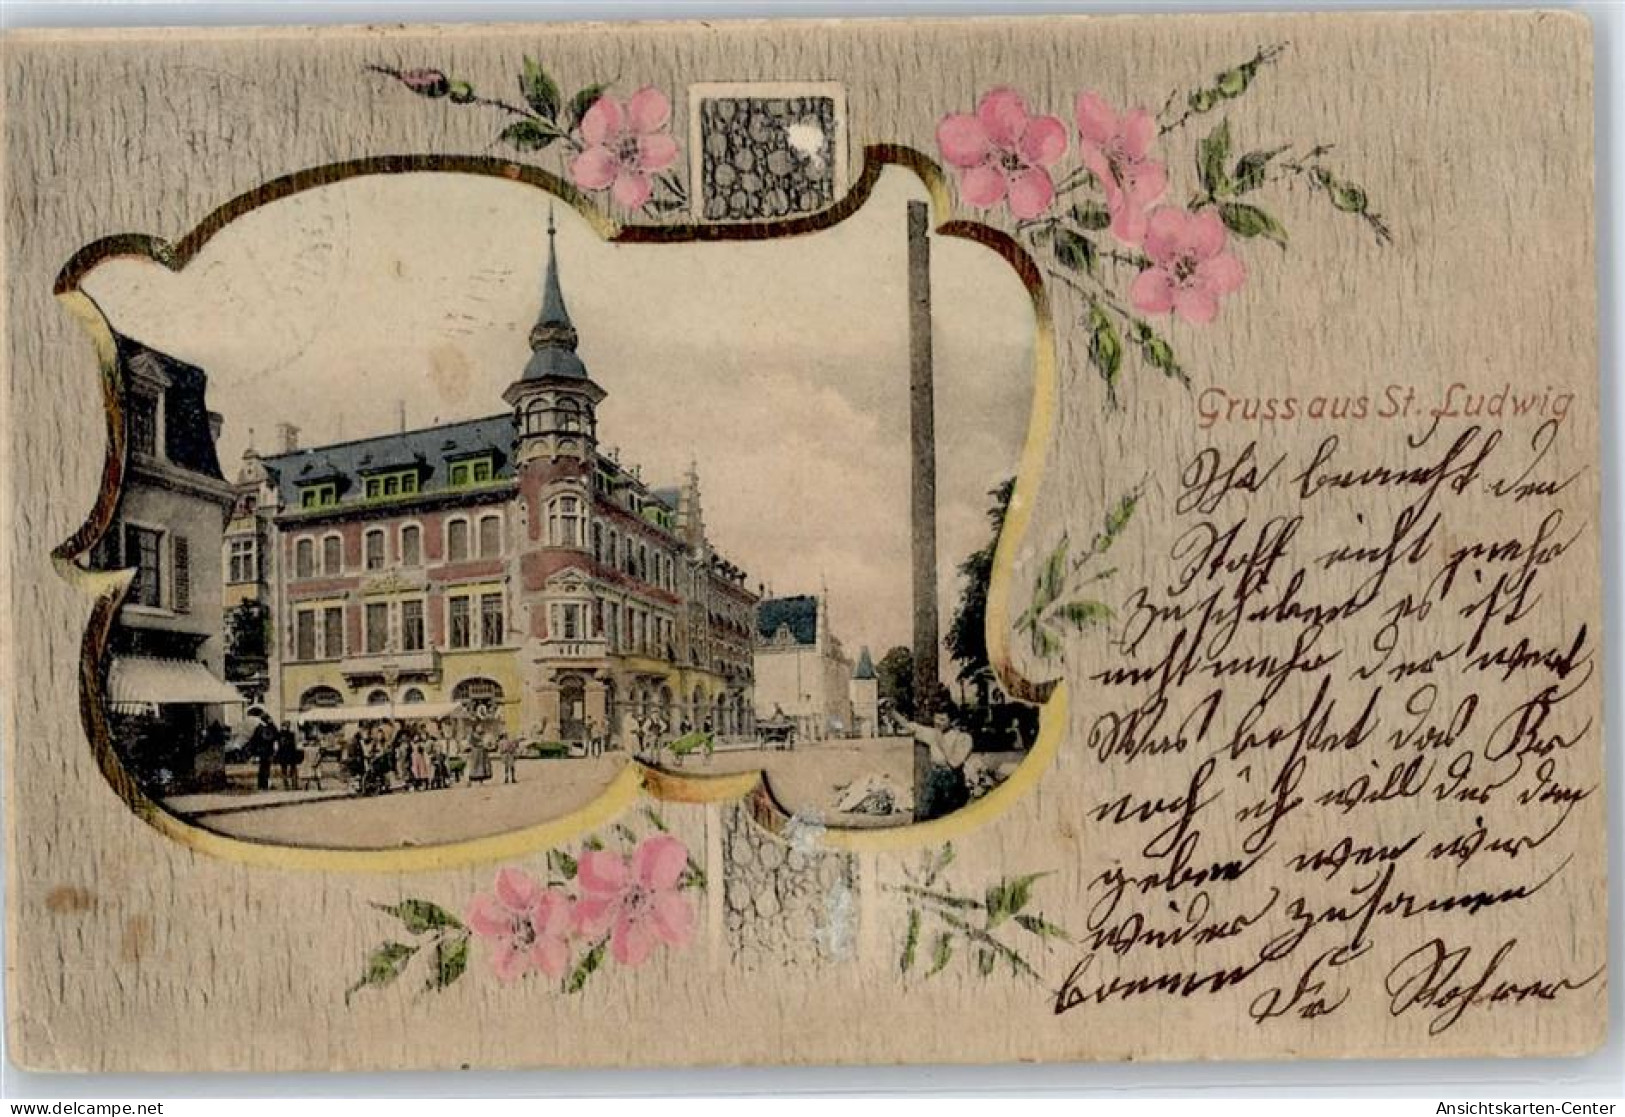 Gruss aus St. Ludwig
Ihr braucht den
Stoff nicht mehr
zu schiken es ist
nicht mehr der wert
Was kostet das
noch ich will der dan
geben wen wir
wieder zusamen
komen Fr Rohrer
delcampe.net
Ansichtskarten-Center